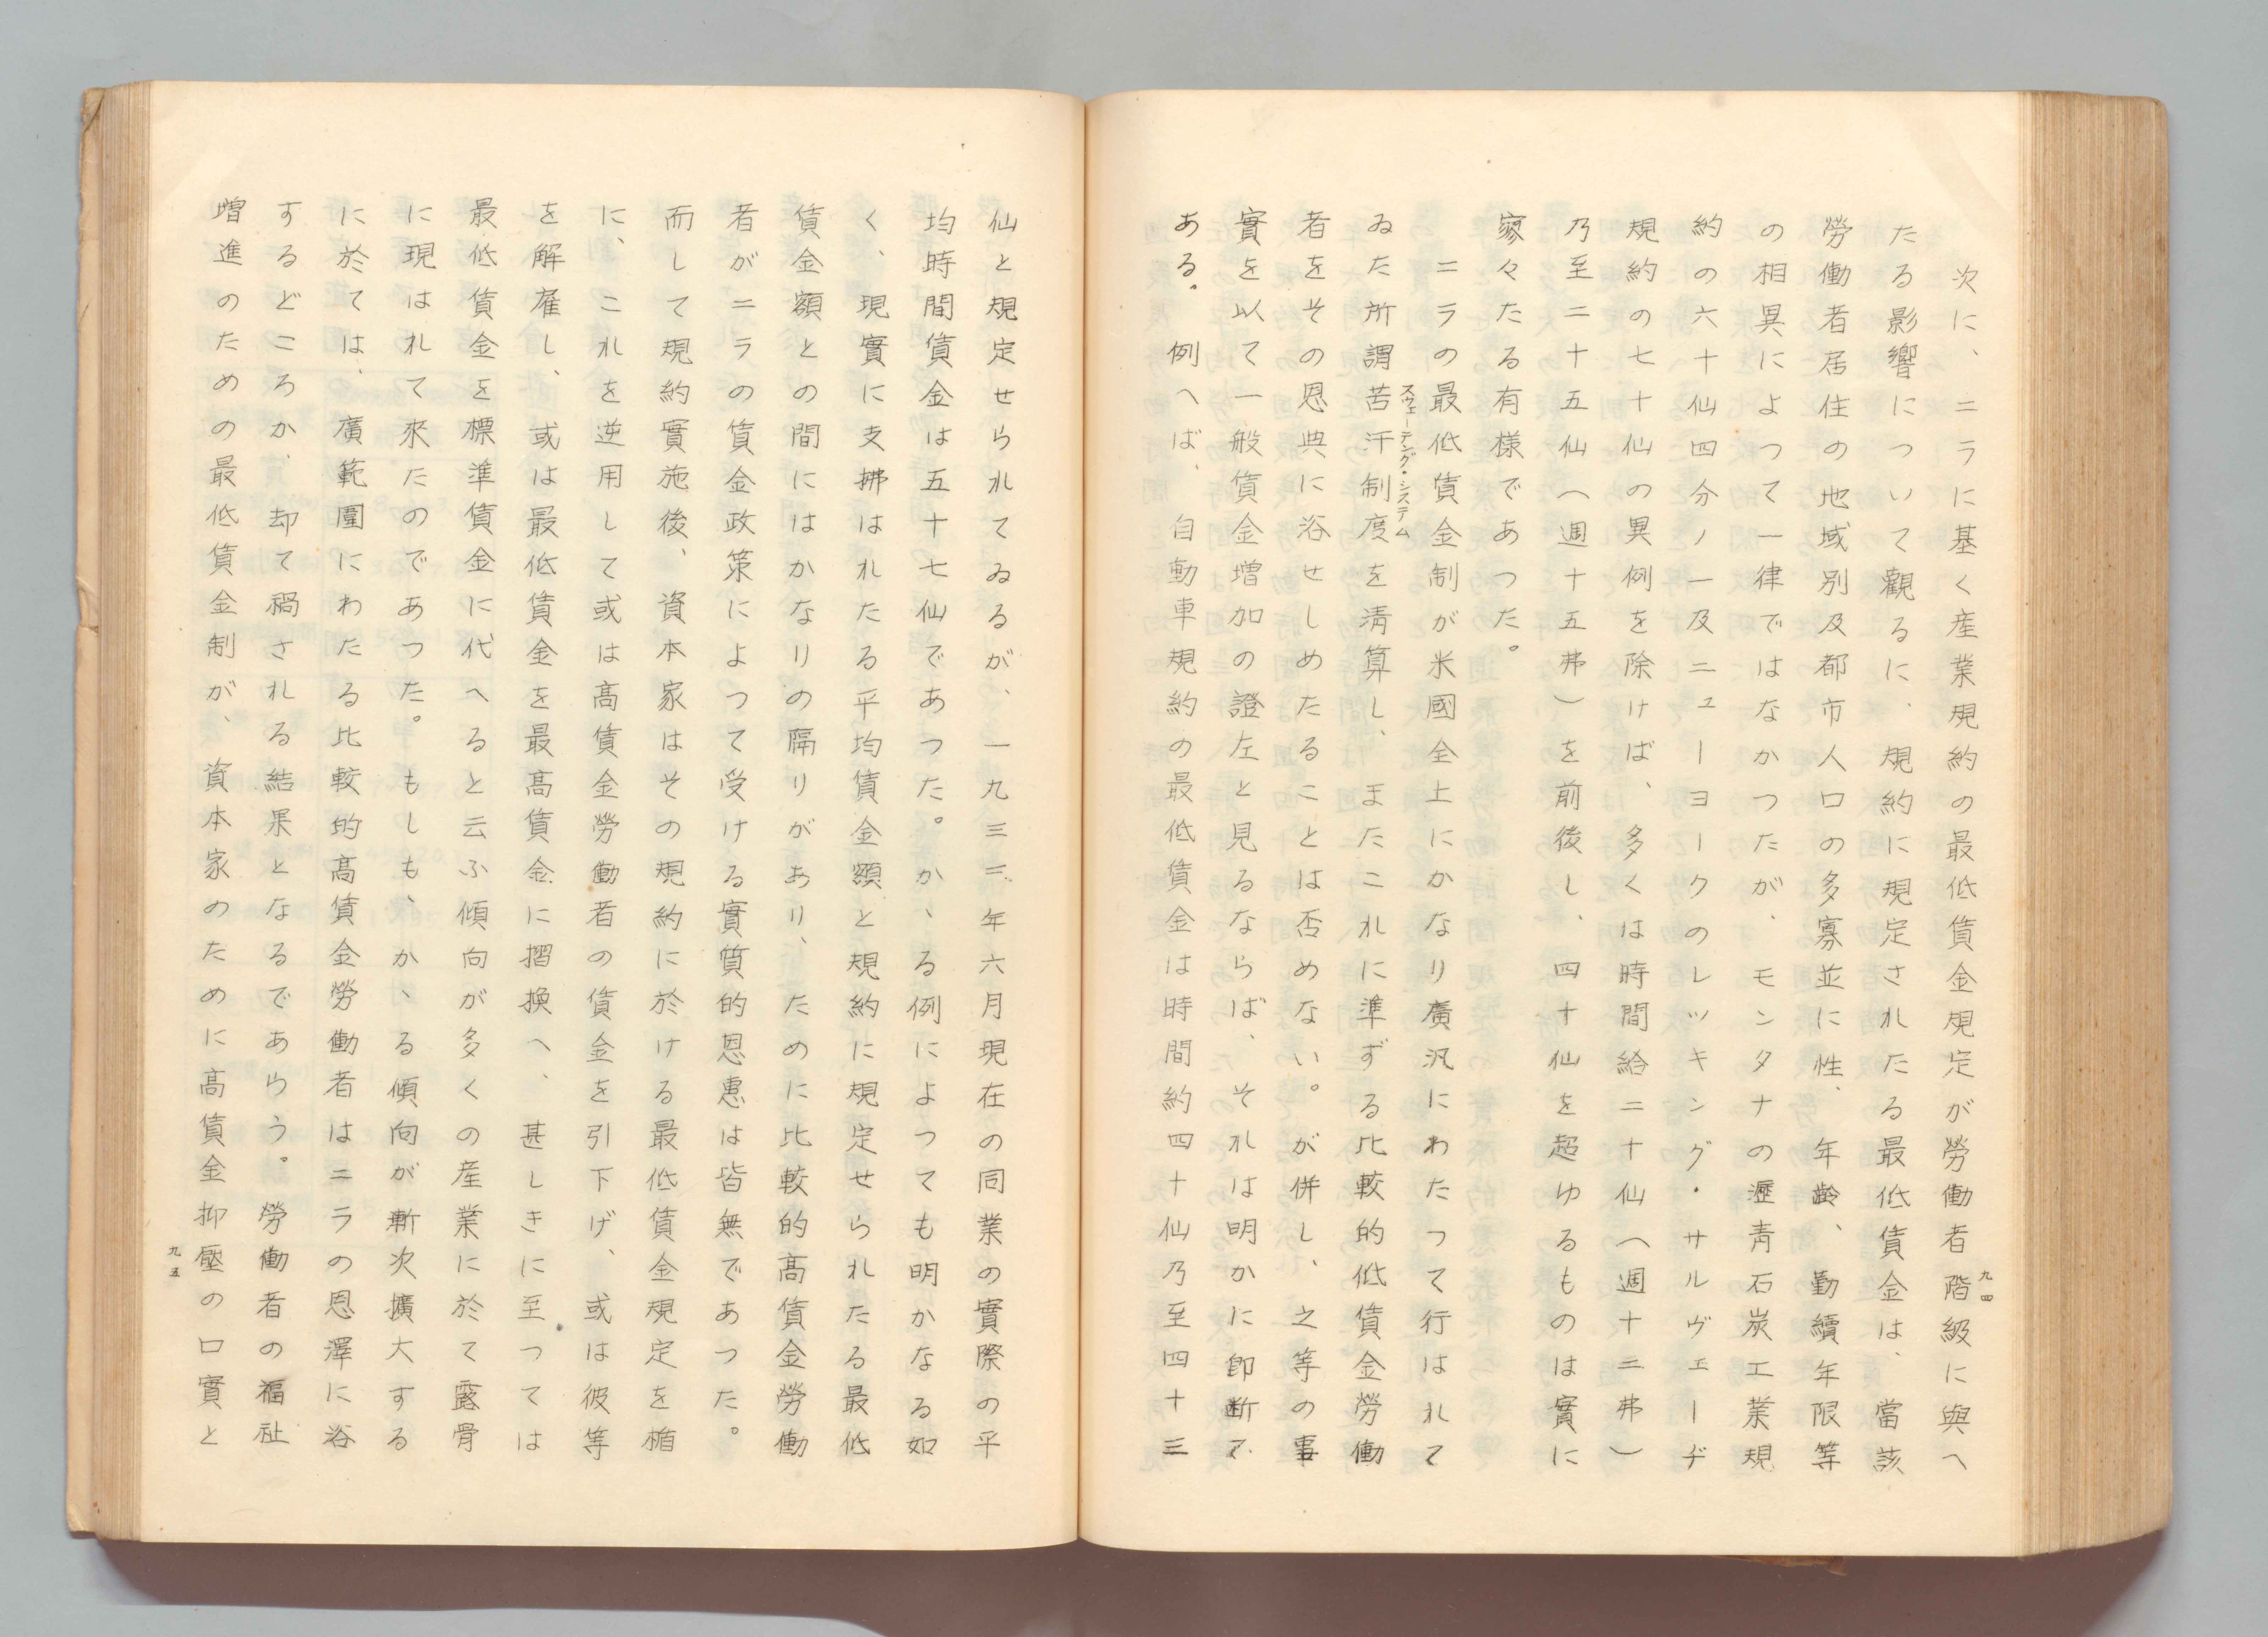 次に、ニラに基く産業規約の最低賃金規定が勞働者階級に與へ
たる影響について觀るに、規約に規定されたる最低賃金は、當該
勞働者居住の地域別及都市人口の多寡並に性、年齢、勤續年限等
の相異によつて一律ではなかつたが、モンタナの瀝青石炭工業規
約の六十仙四分ノ一及ニューヨークのレツキング・サルヴェーヂ
規約の七十仙の異例を除けば、多くは時間給二十仙（週十二弗）
乃至二十五仙（週十五弗）を前後し、四十仙を超ゆるものは實に
寥々たる有様であつた。
ニラの最低賃金制が米國全土にかなり廣汎にわたつて行はれて
ゐた所謂苦汗制度を清算し、またこれに準ずる比較的低賃金勞働
スウェーテング・システム
者をその恩典に浴せしめたることは否めない。が併し、之等の事
實を以て一般賃金増加の證左と見るならば、それは明かに卽断で
ある。例へば、自動車規約の最低賃金は時間約四十仙乃至四十三
九四
仙と規定せられてゐるが、一九三三年六月現在の同業の實際の平
均時間賃金は五十七仙であつた。かゝる例によつても明かなる如
く、現實に支拂はれたる平均賃金額と規約に規定せられたる最低
賃金額との間にはかなりの隔りがあり、ために比較的高賃金勞働
者がニラの賃金政策によつて受ける實質的恩惠は皆無であつた。
而して規約實施後、資本家はその規約に於ける最低賃金規定を楯
に、これを逆用して或は高賃金勞働者の賃金を引下げ、或は彼等
を解雇し、或は最低賃金を最高賃金に摺換へ、甚しきに至つては
最低賃金を標準賃金に代へると云ふ傾向が多くの産業に於て露骨
に現はれて來たのであつた。もしも、かゝる傾向が漸次擴大する
に於ては、廣範圍にわたる比較的高賃金勞働者はニラの恩澤に浴
するどころか、却て禍される結果となるであらう。勞働者の福祉
増進のための最低賃金制が、資本家のために高賃金抑壓の口實と
九五